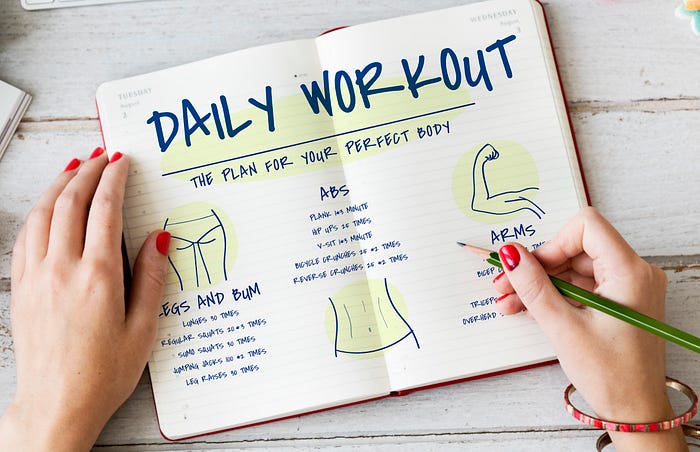 TUESDAY
August
2
WEDNESDAY
August
DAILY WORKOUT
THE PLAN FOR YOUR PERFECT BODY
LEGS AND BUM
LUNGES 30 TIMES
REGULAR SQUATS 20*3 TIMES
SUMO SQUATS 30 TIMES
JUMPING JACKS 100 *2 TIMES
LEG RAISES 30 TIMES
ABS
PLANK 1*3 MINUTE
HIP UPS 25 TIMES
V-SIT 1*3 MINUTE
BICYCLE CRUNCHES 25 *2 TIMES
REVERSE CRUNCHES 25 *2 TIMES
ARMS
BICEP
TRICEPS
OVERHEAD